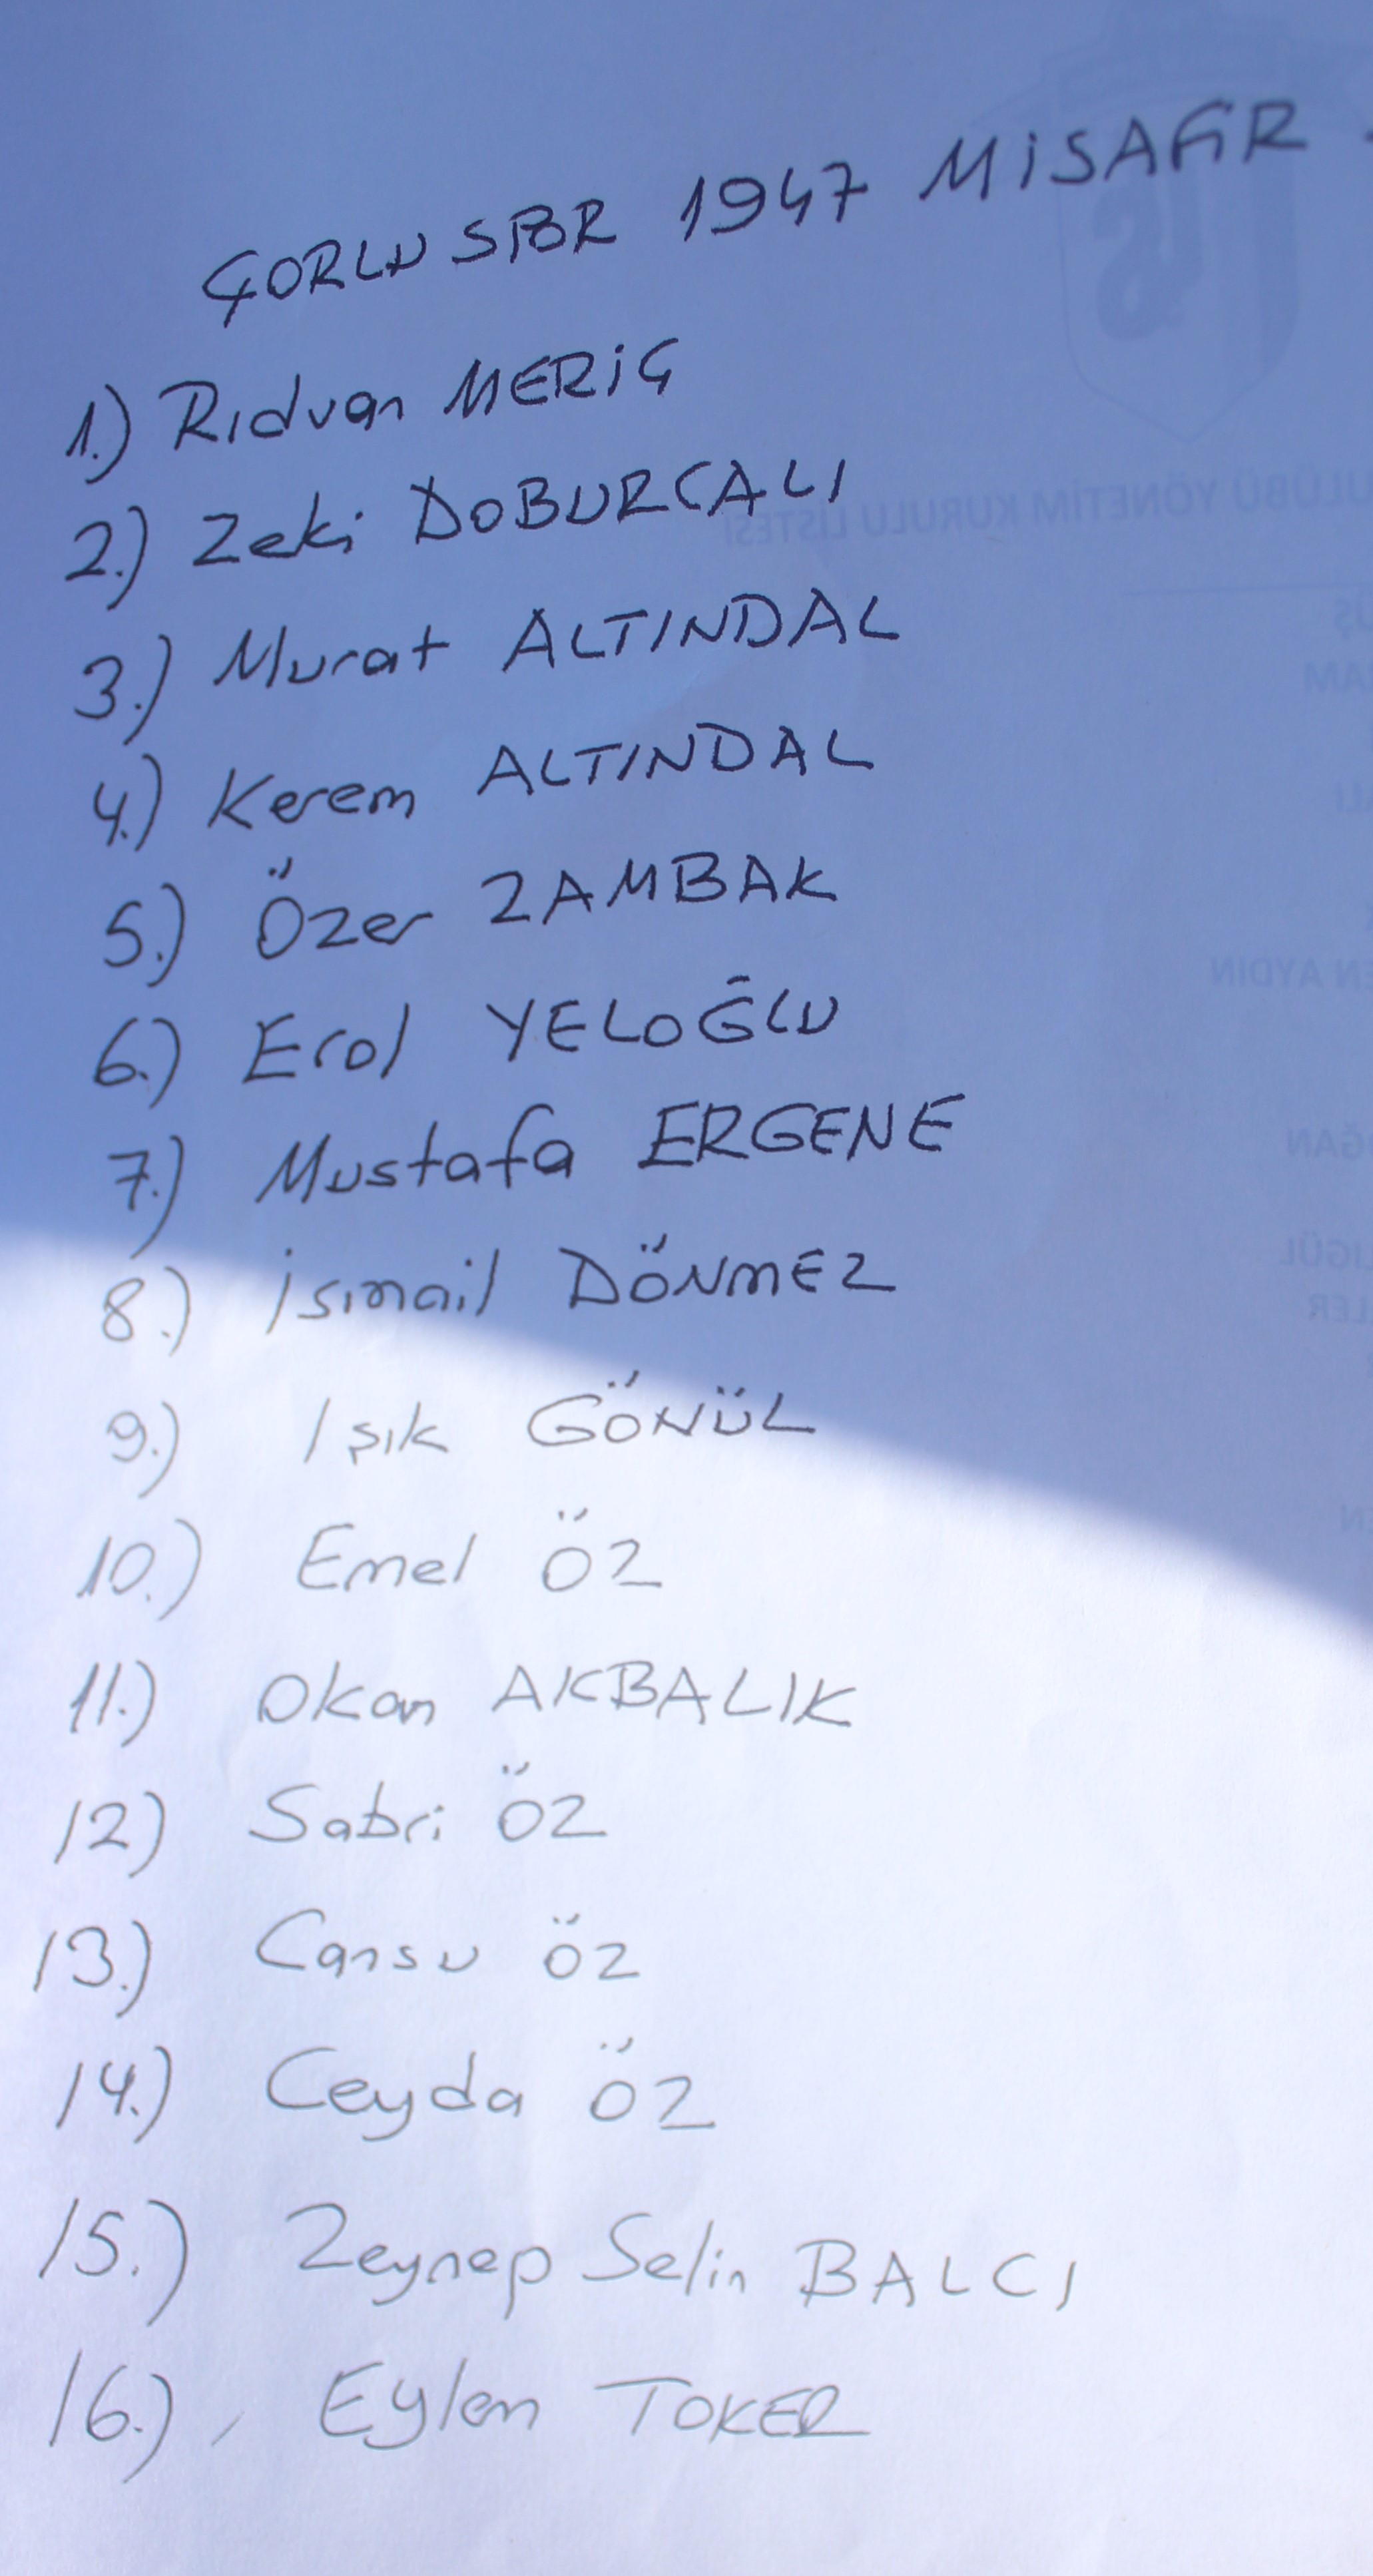 ÇORLUSPOR 1947 MİSAFİR
1.) Rıdvan MERİÇ
2.) Zeki DOBURCALI
3.) Murat ALTINDAL
4.) Kerem ALTINDAL
5.) Özer ZAMBAK
6.) Erol YELOĞLU
7.) Mustafa ERGENE
8.) İsmail DÖNMEZ
9.) Işık GÖNÜL
10.) Emel ÖZ
11.) Okan AKBALIK
12) Sabri ÖZ
13.) Cansu ÖZ
14.) Ceyda ÖZ
15.) Zeynep Selin BALCI
16.) Eylem TOKER
ULÜBÜ YÖNETİM KURULU LİSTESİ
EN AYDIN